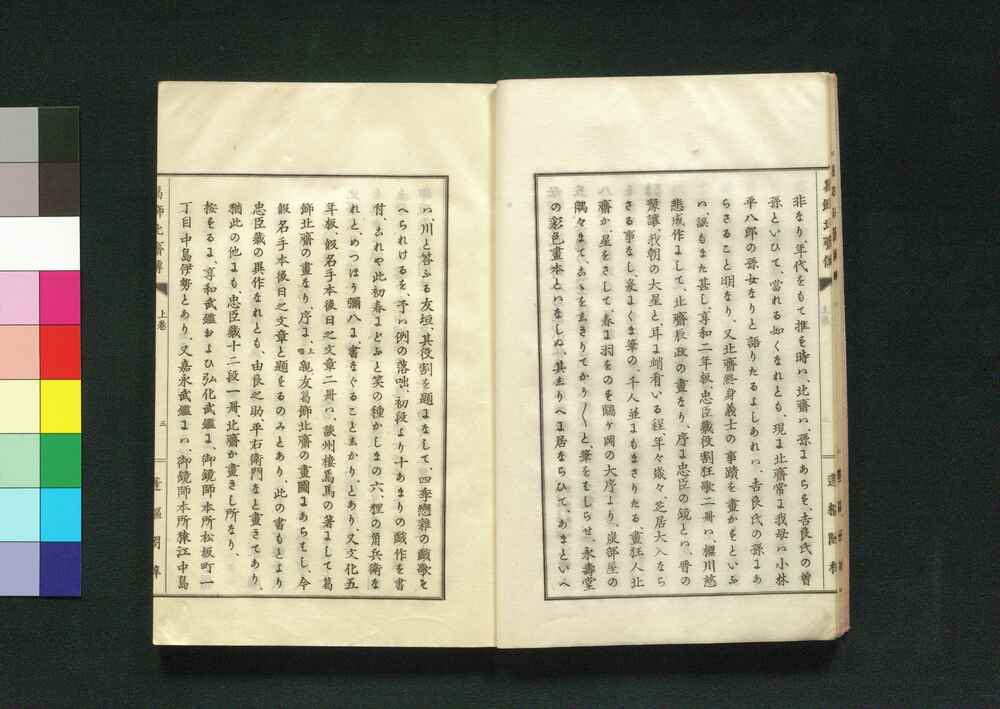 非なり、年代をもて推を時ハ、北齋ハ、孫にあらを、吉良氏の曽
孫といひて、當れる如くなれとも、現に北齋常に我母ハ小林
平八郎の孫女なりと語りたるよしあれハ、吉良氏の孫にあ
らさること明なり、又北齋終身義士の事蹟を畫かをといふ
ハ、誤もまた甚し、享和二年板、忠臣藏役割狂歌二冊ハ、櫻川慈
悲成作にして、北齋辰政の畫なり、序に忠臣の鏡とハ、晋の
豫讓、我朝の大星と、耳に蛸看いる程、年々歳々、芝居大入なら
さる事なし、爰にくま筆の、千人並にもまさりたる、畫狂人北
齋か、星をさして、春ハ羽をのを鶴ヶ岡の大序より、炭部屋の
隅々まて、
の彩色畫本といなしぬ、其
ハ、川と答ふる友垣、其役割を題になして、四季戀雜の戯歌を
へられけるを、予ハ例の落咄、初段より十あまりの戯作を書
付、これや此初春にどふと笑の種かしまの六、狸の角兵衛な
れと、めつほう彌八に、書なぐることしかり、とあり、又文化五
年板、假名手本後日之文章二冊ハ、談州樓焉馬の著にして葛
飾北齋の畫なり、序に、上略親友葛飾北齋の畫圖にあらもし、今
假名手本後日之文章と題をるのみとあり、此の書もとより
忠臣藏の異作なれとも、由良之助平右衛門なと畫きてあり、
猶此の他にも、忠臣藏十二段一冊、北齋か畫きし所なり、
按をるに、享和武鑑およひ弘化武鑑に、御鏡師本所松坂町一
丁目中島伊勢とあり、又嘉永武鑑にハ、御鏡師本所猿江中島
葛飾北齋傳
上卷
三